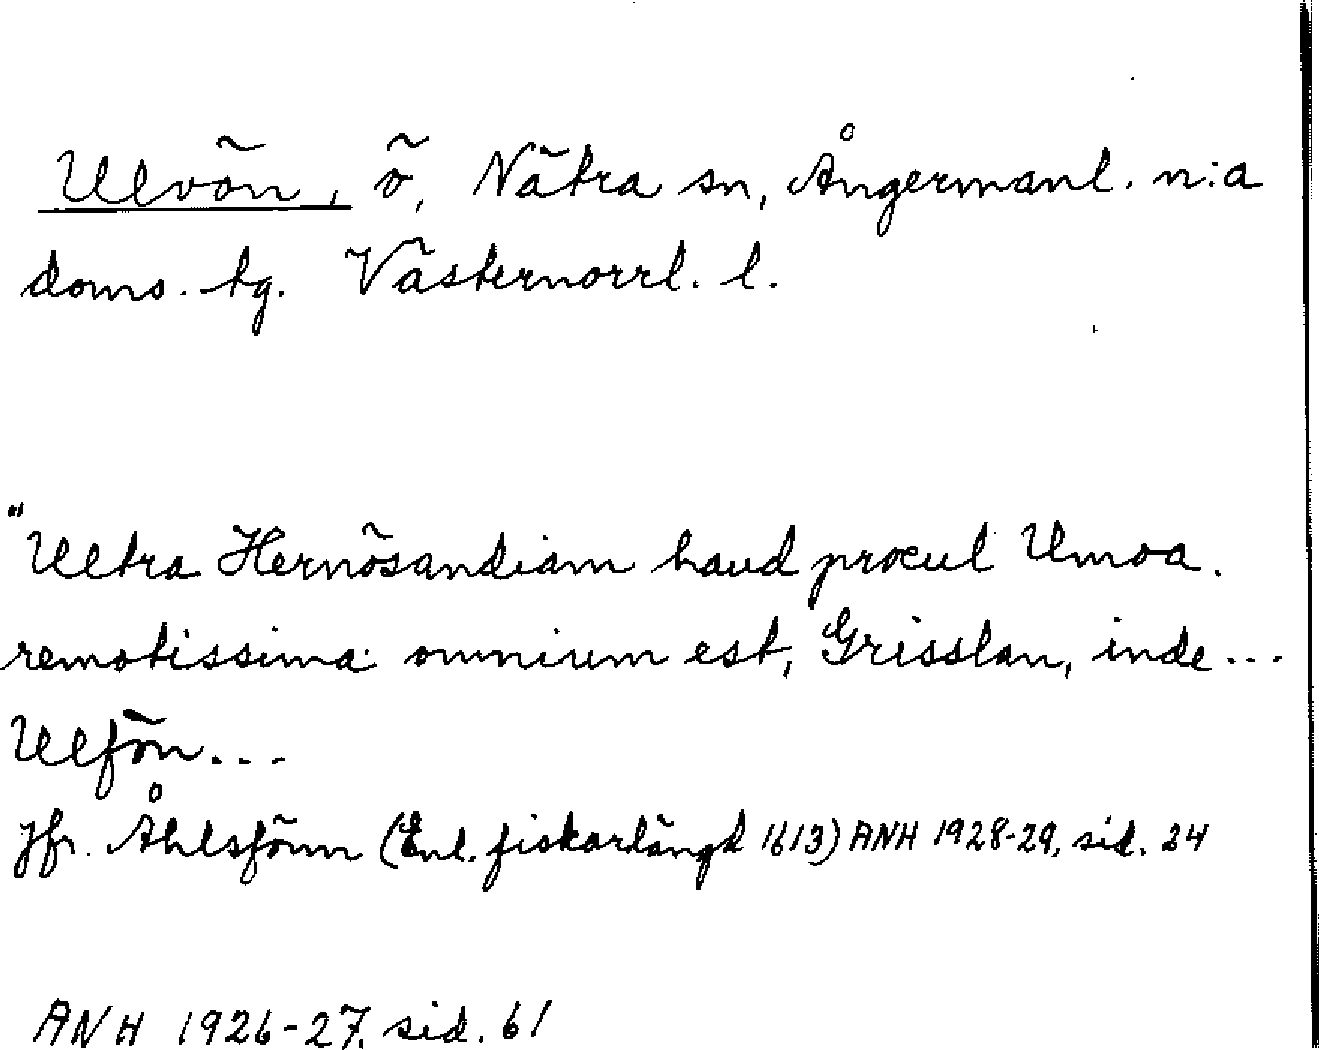 Ulvön, ö, Nätra sn, Ångermanl. n:a
doms. tg. Västernorrl. l.
"Ultra Hernösandiam haud procul Umoa.
remotissima omnium est, Grisslan, inde...
Ulfön...
Jfr. Åhlsfönn (Enl. fiskarlängd 1613) ANH 1928-29, sid. 24
ANH 1926-27, sid. 61